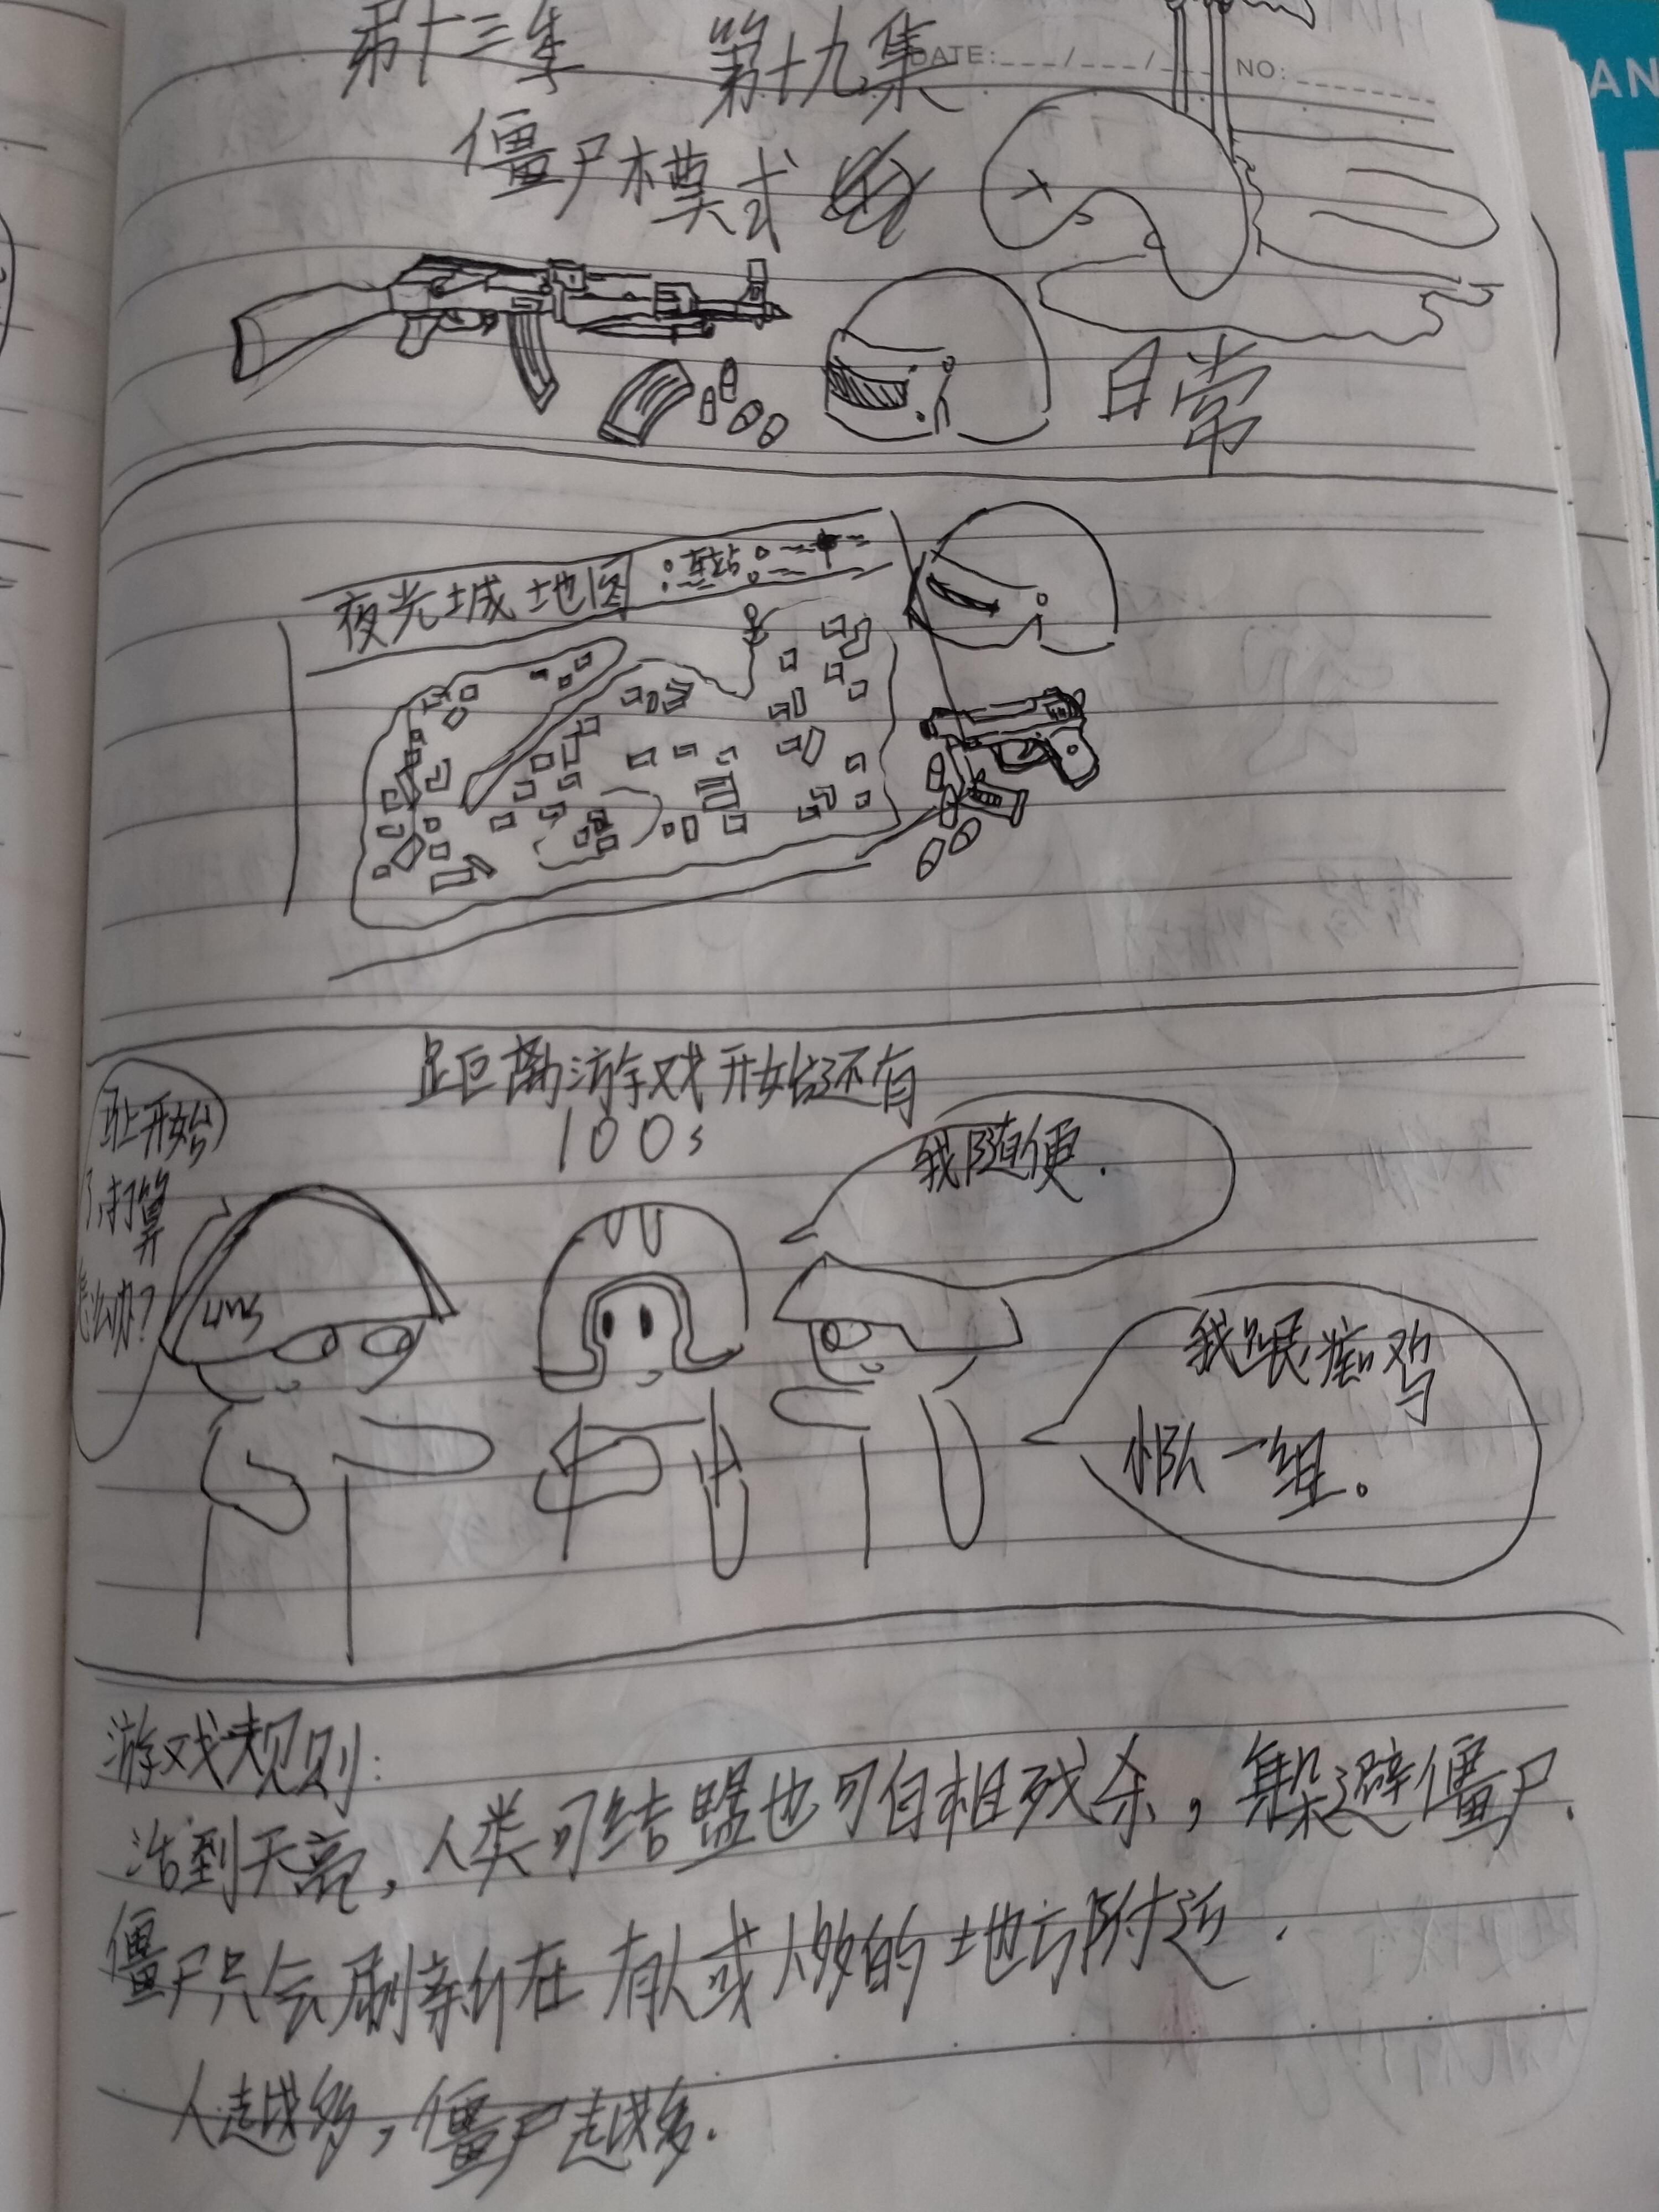 第十三集 第十九集
DATE: / / NO:
AN
僵尸模式
日常
夜光城地图
距离游戏开始还有
100s
马上开始
了,打算
怎么办?
我随便.
我跟痴鸡
小队一组。
游戏规则:
活到天亮,人类可结盟也可自相残杀,躲避僵尸.
僵尸只会刷新在有人或人多的地方附近.
人越多,僵尸越多.